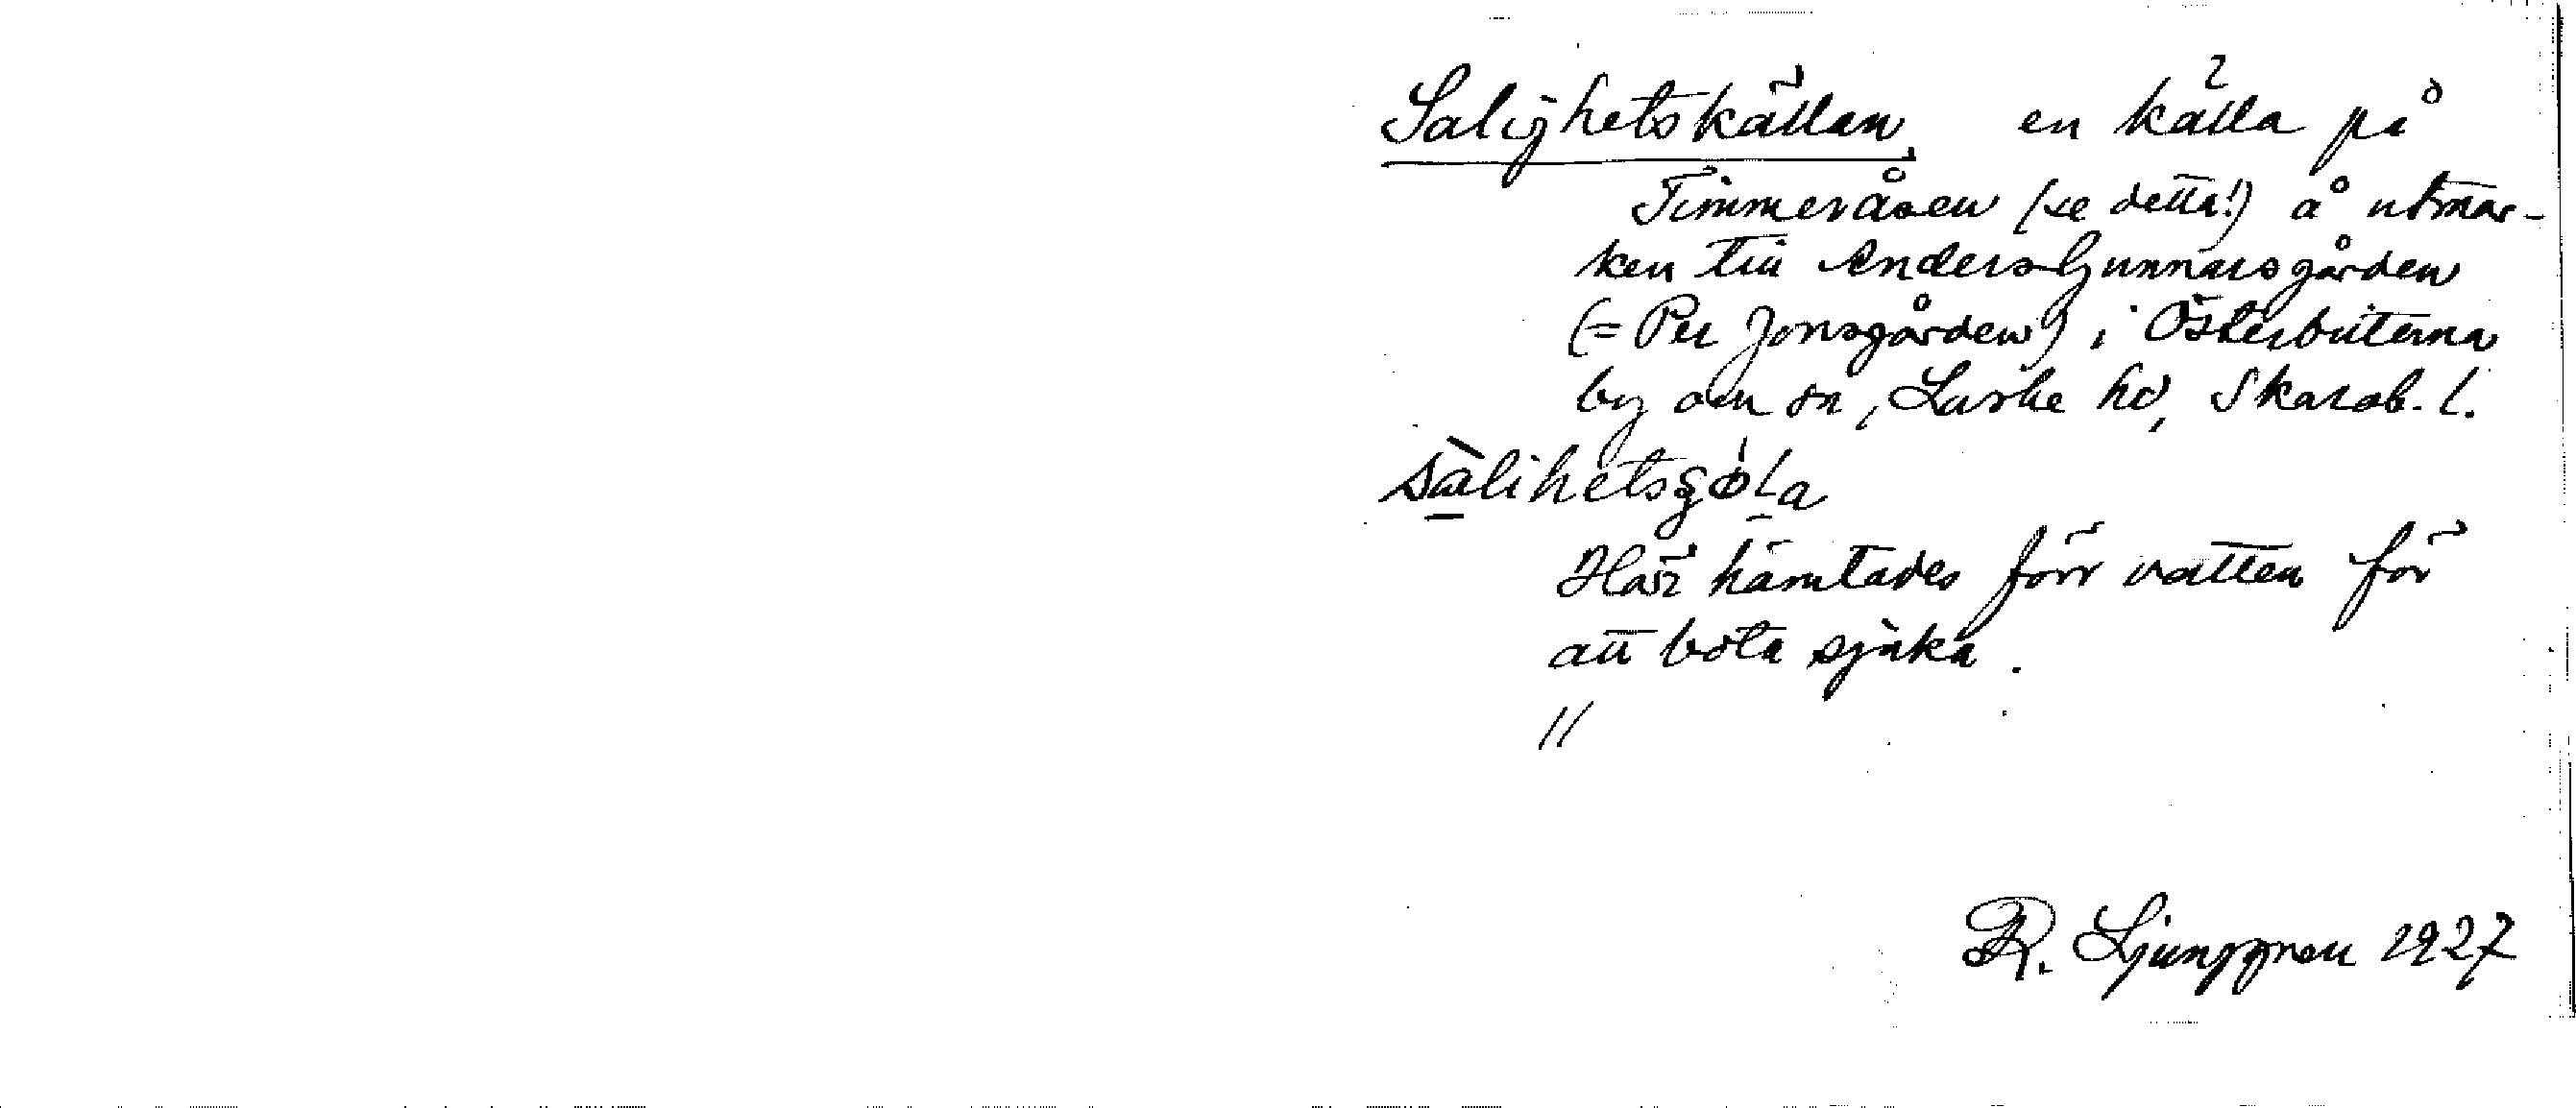 Salighetskällan, en källa på
Timmeråsen (se detta!) å utmar-
ken till Anders Gunnarsgården
(= Per Jonsgården) i Österbitterna
by o en sn, Laske hd, Skarab. l.
Här hämtades förr vatten för
att bota sjuka.
//
R. Ljunggren 1927